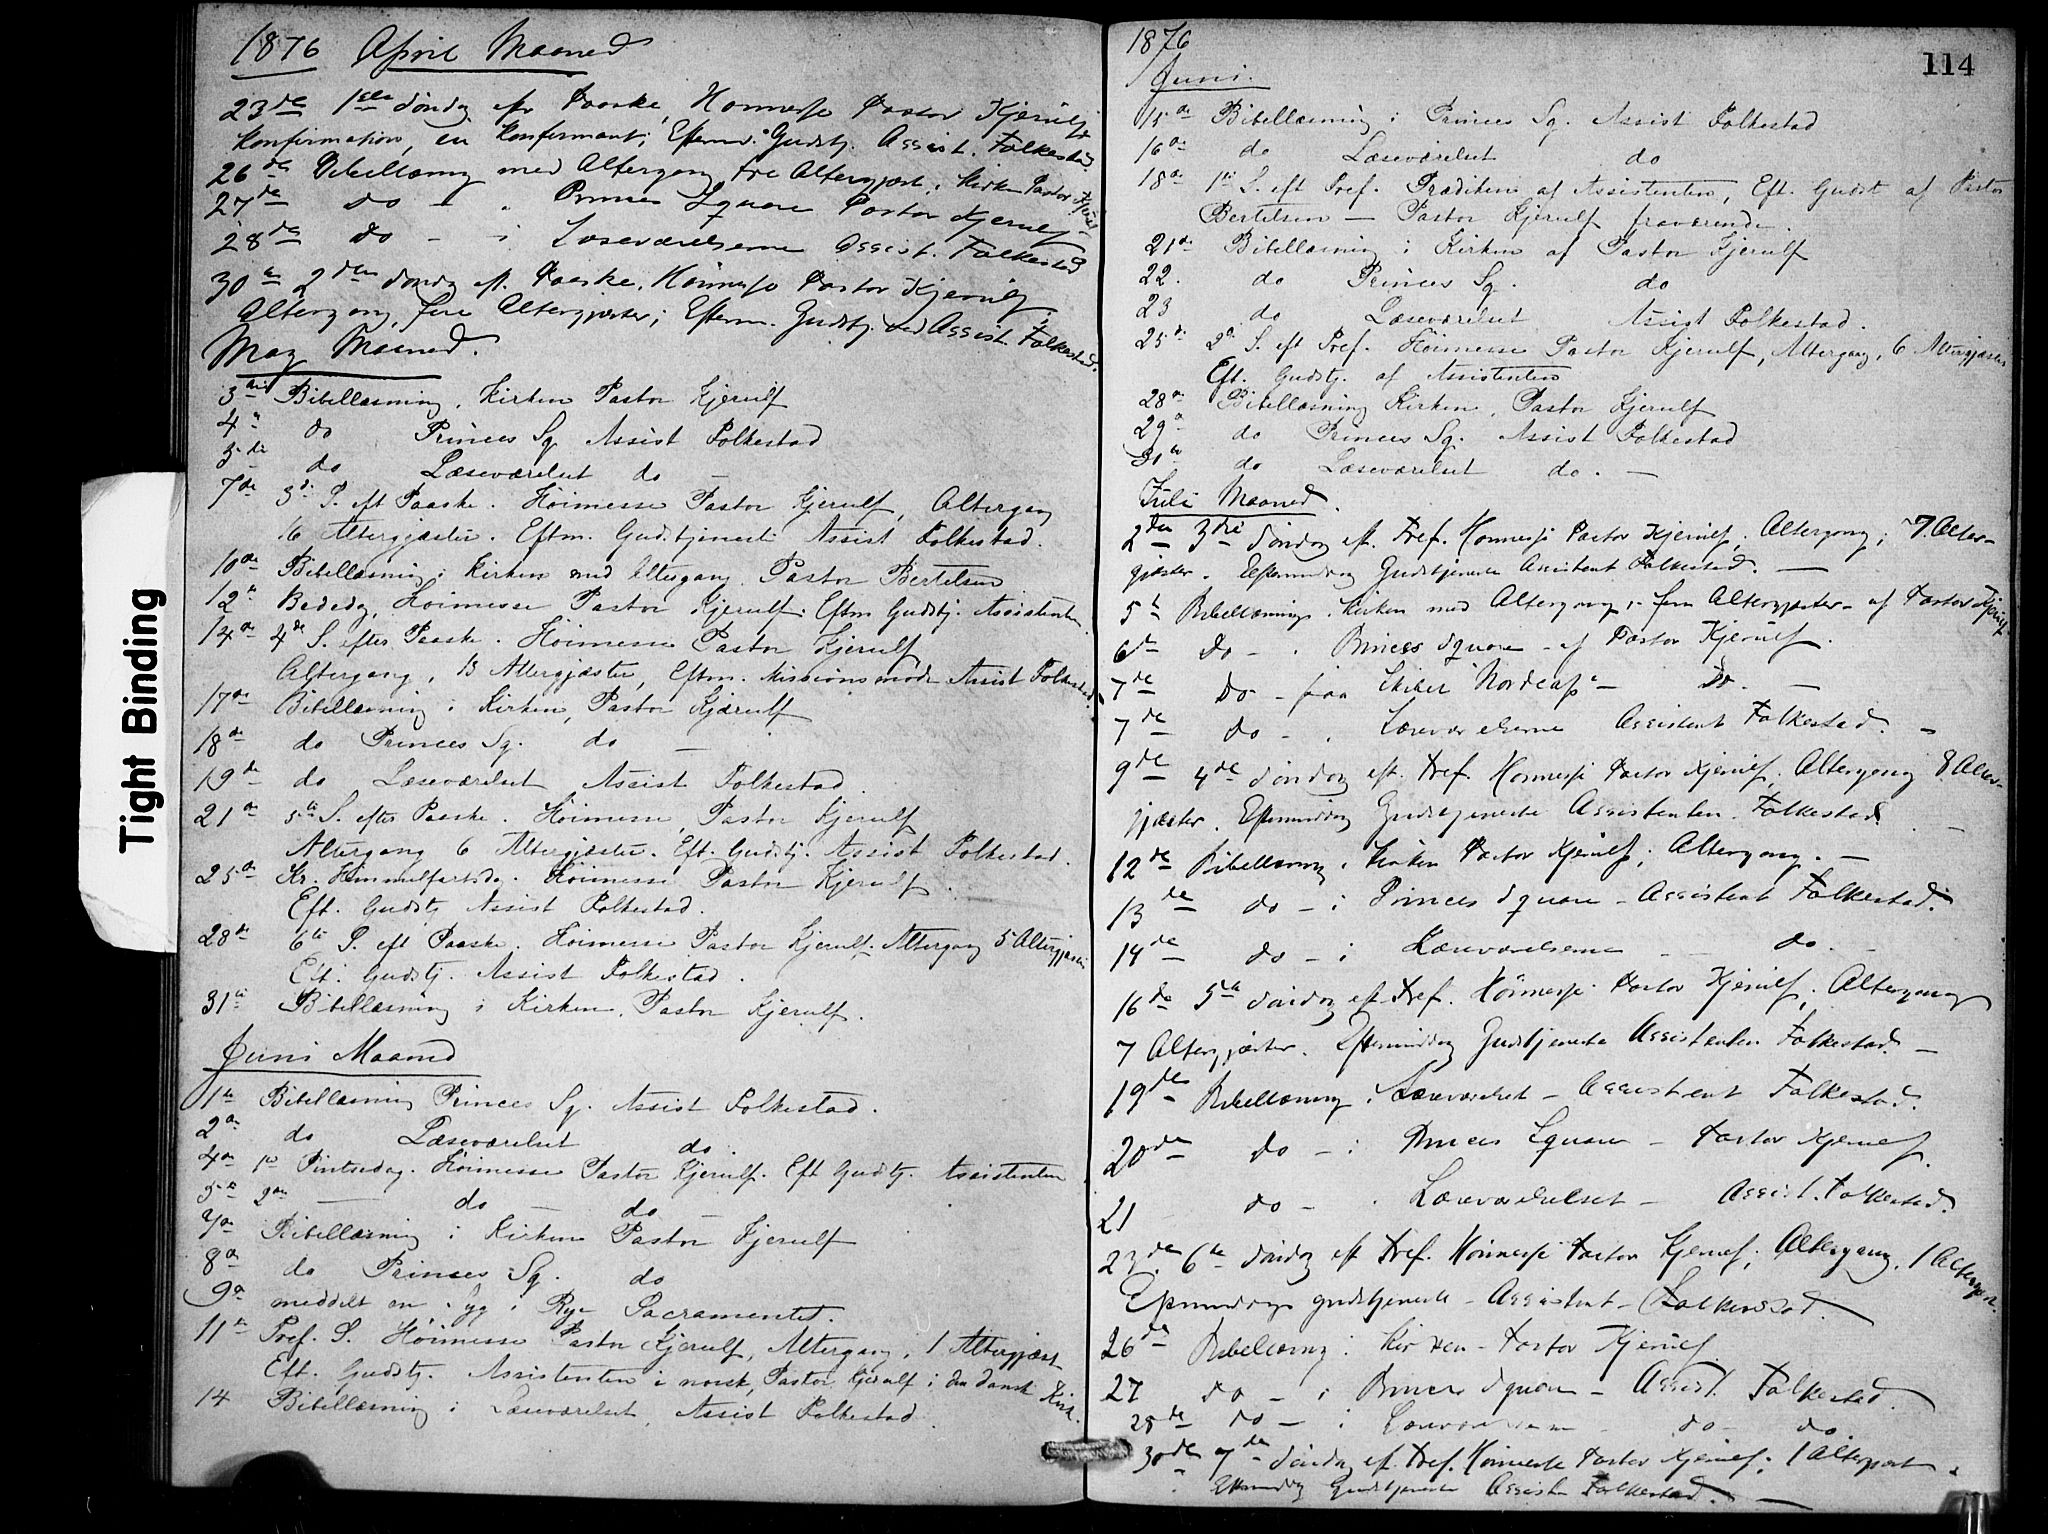 1876 April Maaned
23de 1ste Søndag eft Paaske, Høimesse Pastor Kjerulf
Konfirmation, en Konfirmant; Efterm. Gudstj. Assist. Folkestad
26de Bibellæsning med Altergang tre Altergjæst. i Kirken Pastor Kjerulf
27de do - " Princes Square Pastor Kjerulf
28de do - i Læseværelserne Assist. Folkestad
30te 2den Søndag eft. Paaske. Høimesse Pastor Kjerulf
Altergang, fire Altergjæster; Efterm. Gudstj. ved Assist. Folkestad.
May Maaned.
3die Bibellæsning i Kirken Pastor Kjerulf
4de do Princes Sq. Assist Folkestad
5te do Læseværelset do -
7de 3die S. eft Paaske. Høimesse Pastor Kjerulf, Altergang
16 Altergjæster. Eftm. Gudstjeneste Assist Folkestad.
10de Bibellæsning i Kirken med Altergang. Pastor Bertelsen
12te Bededag, Høimesse Pastor Kjerulf. Eftm Gudstj. Assistenten.
14de 4de S. efter Paaske. Høimesse Pastor Kjerulf
Altergang, 13 Altergjæster, Eftm. Missionsmøde Assist Folkestad.
17de Bibellæsning i Kirken, Pastor Kjærulf
18de do Princes Sq. do -
19de do Læseværelset Assist Folkestad.
21de 5te S. efter Paaske. Høimesse, Pastor Kjerulf
Altergang 6 Altergjæster. Eft. Gudstj. Assist Folkestad.
25de Kr. Himmelfartsd. Høimesse Pastor Kjerulf.
Eft. Gudstj Assist Folkestad.
28de 6te S. eft Paaske. Høimesse Pastor Kjerulf. Altergang 5 Altergjæster
Eft. Gudstj. Assist Folkestad.
31te Bibellæsning i Kirken, Pastor Kjerulf.
Juni Maaned
1te Bibellæsning Princes Sq. Assist Folkestad.
2den do Læseværelset do.
4de 1ste Pintsedag. Høimesse Pastor Kjerulf. Eft Gudstj. Assistenten
5te 2den - do - do -
7de Bibellæsning i Kirken Pastor Kjerulf
8de do Princes Sq. do
9de meddelt en Syg i Rye Sacramentet.
11te Tref. S. Høimesse Pastor Kjerulf, Altergang, 1 Altergjæst
Eft. Gudstj. Assistenten i norsk, Pastor Kjerulf i den dansk Kirk.
14 Bibellæsning i Læseværelset, Assist Folkestad.
1876
114
Juni.
15de Bibellæsning i Princes Sq. Assist Folkestad
16de do Læseværelset do
18de 1ste S. eft Tref. Prædiken af Assistenten, Eft. Gudst af Pastor
Bertelsen - Pastor Kjerulf fraværende.
21de Bibellæsning i Kirken af Pastor Kjerulf
22. do Princes Sq. do
23 do Læseværelset Assist Folkestad.
25de 2den S. eft Tref. Høimesse Pastor Kjerulf, Altergang, 6 Altergjæster
Eft. Gudstj. af Assistenten
28de Bibellæsning Kirken, Pastor Kjerulf
29de do Princes Sq. Assist Folkestad
31te do Læseværelset do. -
Juli Maaned.
2den 3die Søndag eft. Tref. Høimesse Pastor Kjerulf. Altergang; 7. Alter-
gjæster. Eftermiddag Gudstjeneste Assistent Folkestad. -
5te Bibellæsning i Kirken med Altergang, fem Altergjæster - af Pastor Kjerulf
6te do - i Princes Square - af Pastor Kjerulf.
7de do - paa Skibet "Nordcap" - Do. -
7de do - i Læseværelserne Assistent Folkestad. -
9de 4de Søndag eft. Tref. Høimesse Pastor Kjerulf. Altergang 8. Alter-
gjæster. Eftermiddag Gudstjeneste Assistenten. Folkestad. -
12de Bibellæsning i Kirken Pastor Kjerulf; Altergang. -
13de do - i Princes Square - Assistent Folkestad.
14de do - i Læseværelserne - do. -
16de 5te Søndag eft Tref. Høimesse Pastor Kjerulf; Altergang
7 Altergjæster. Eftermiddag Gudstjeneste Assistenten Folkestad. -
19de Bibellæsning i Læseværelset - Assistent Folkestad.
20de do - i Princes Square - Pastor Kjerulf.
21 do - i Læseværelset - Assist. Folkestad.
23de 6te Søndag eft Tref. Høimesse Pastor Kjerulf; Altergang. 1 Altergjæst.
Eftermiddags gudstjeneste - Assistent - Folkestad.
26de Bibellæsning i Kirken - Pastor Kjerulf.
27 do - i Princes Square - Assist. Folkestad.
28de do - i Læseværelserne do - do.
30de 7de Søndag eft. Tref. Høimesse Pastor Kjerulf; 1 Altergjæst.
Eftermiddag Gudstjeneste Assisten Folkestad. -
Tight Binding